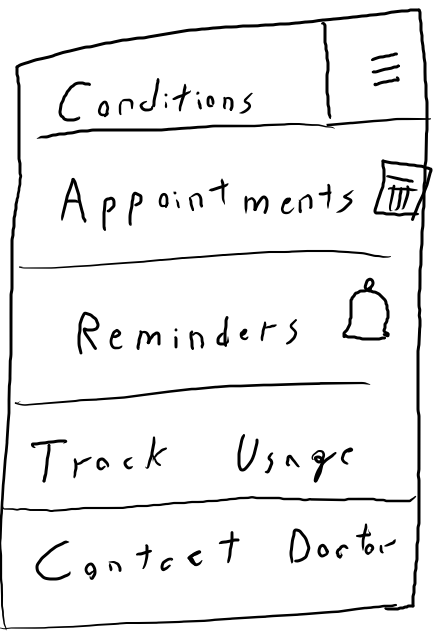 Conditions
Appointments
Reminders
Track Usage
Contact Doctor